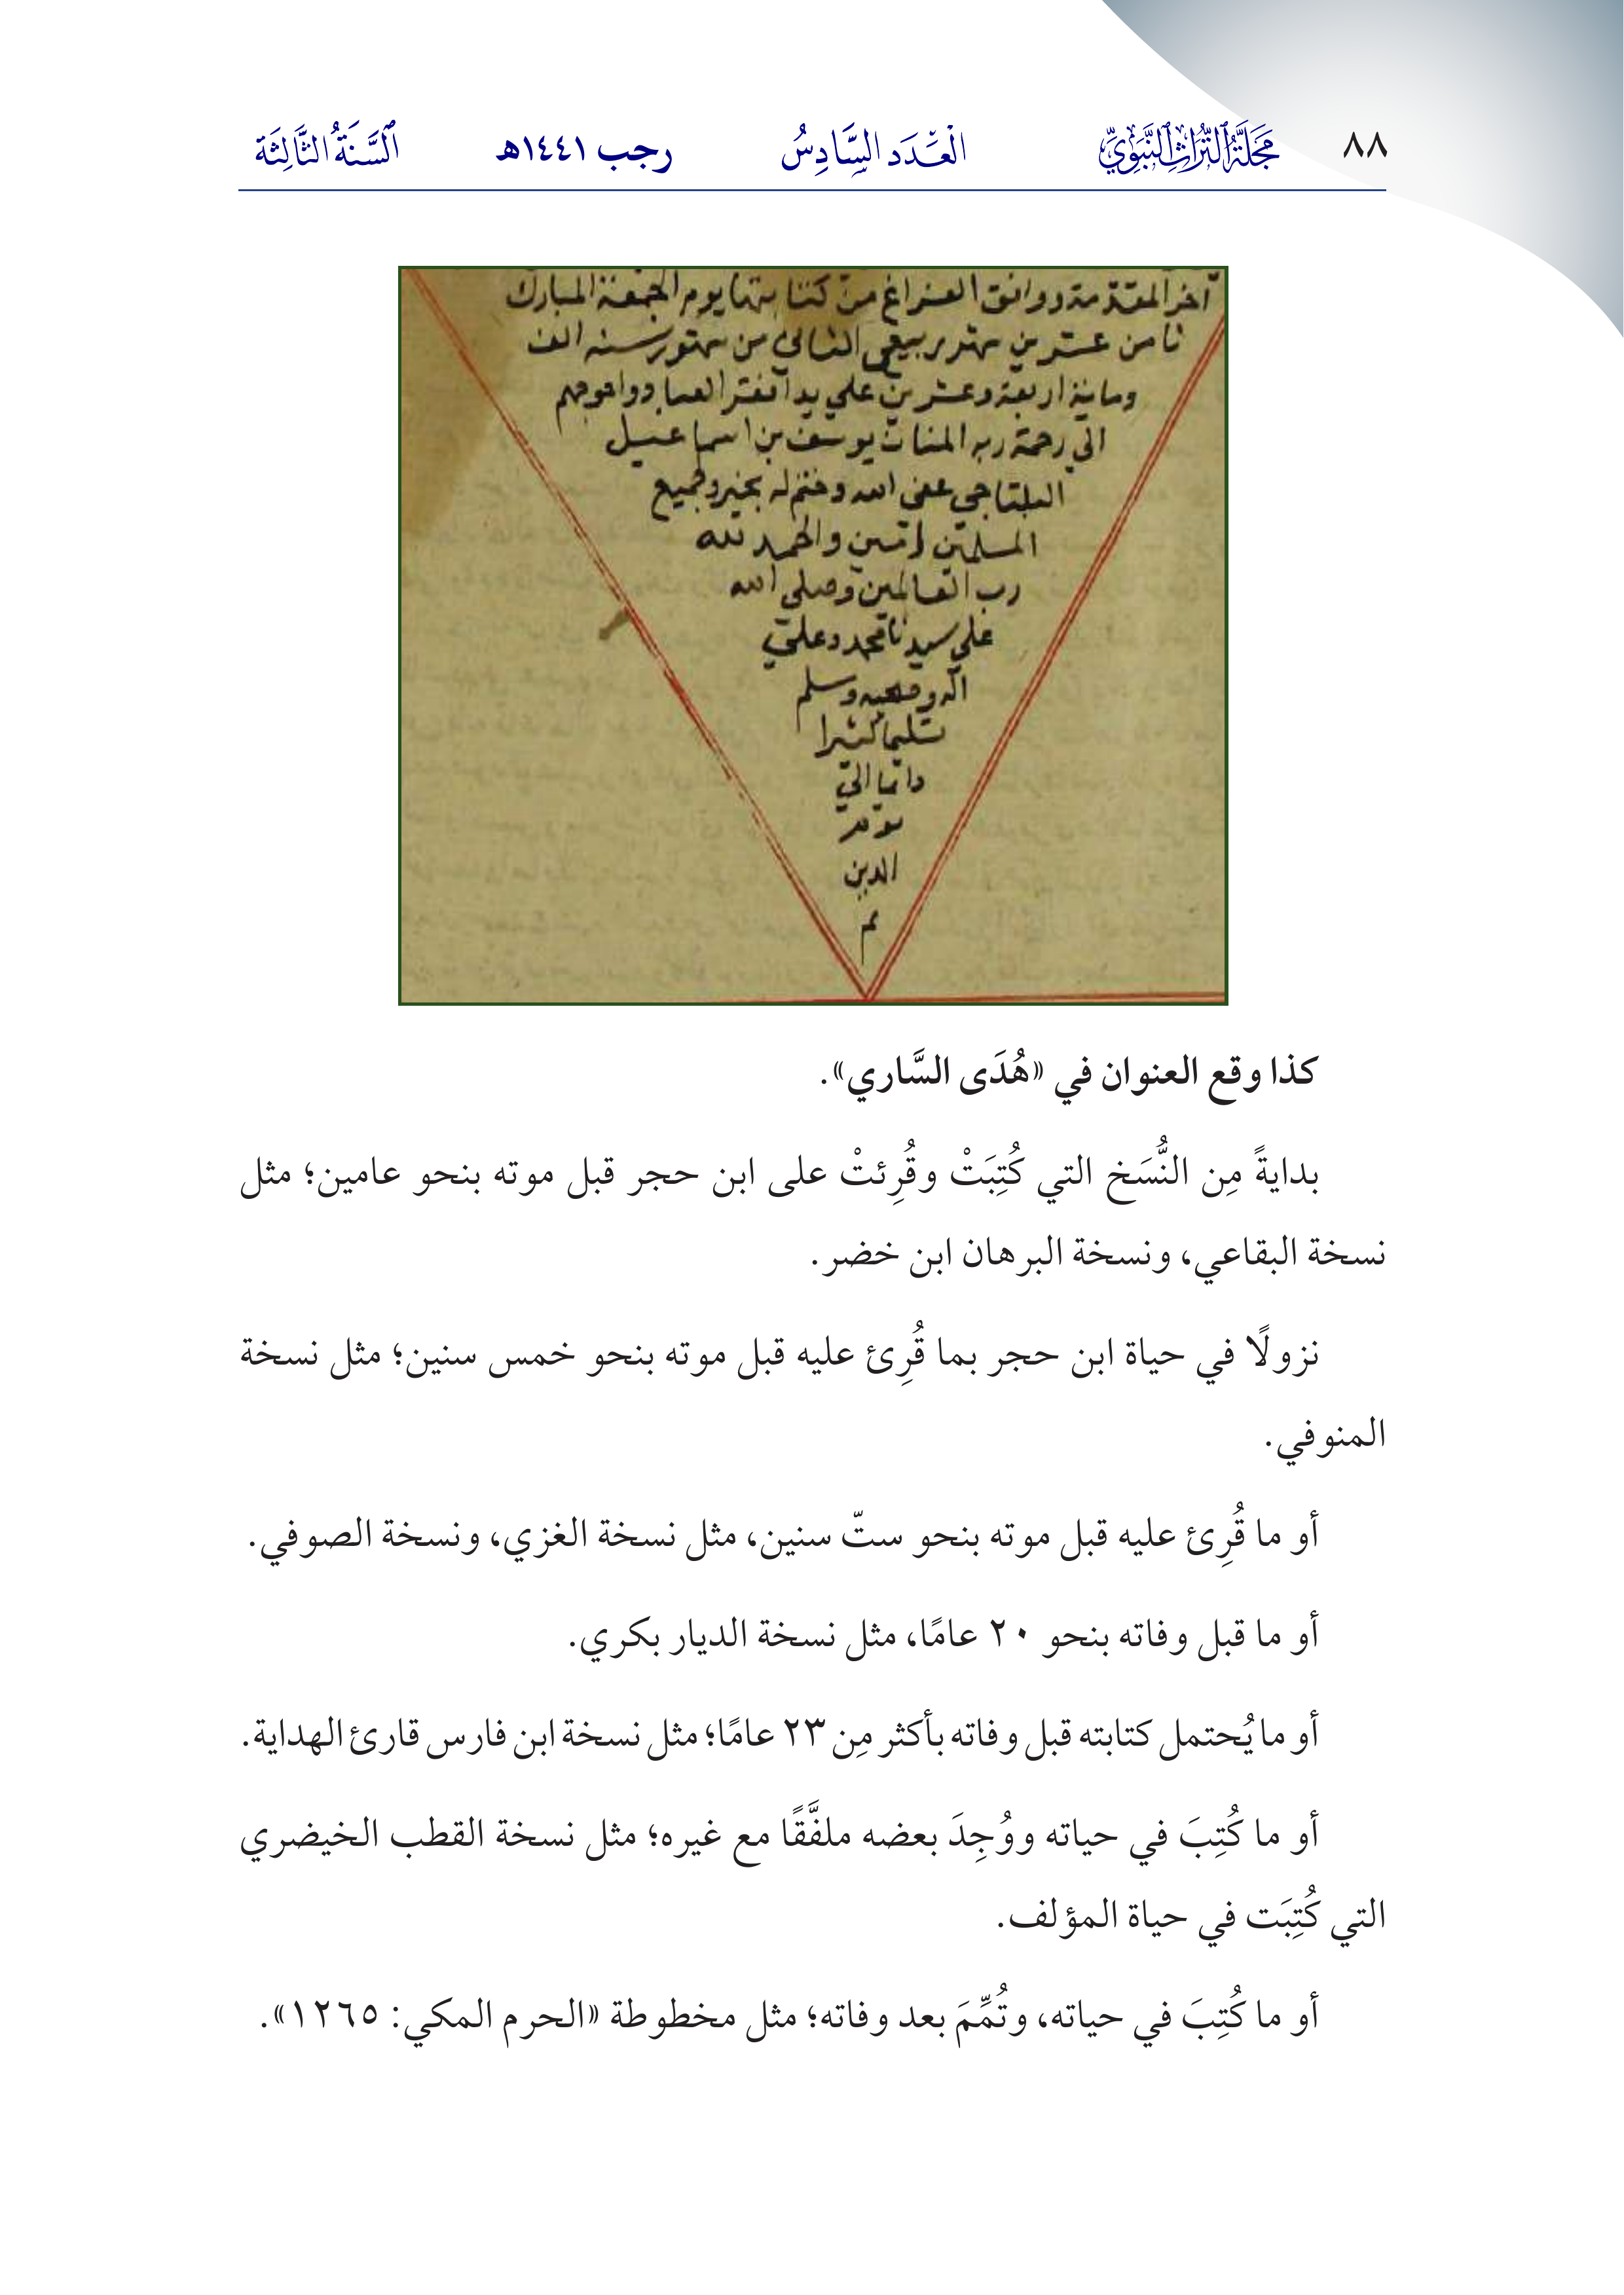 ٨٨ مَجَلَّةُ التُّرَاثِ النَّبَوِيِّ الْعَدَد السَّادِسُ رجب ١٤٤١هـ السَّنَةُ الثَّالِثَة
آخر المقدمة ووافق الفراغ من كتابتها يوم الجمعة المبارك
ثامن عشرين شهر ربيع الثاني من شهور سنه الف
وماية اربعة وعشرين علي يد افقر العباد واحوجهم
الي رحمة ربه المنان يوسف بن اسماعيل
عفى الله وختم له بخير وجميع
المسلمين امين والحمد لله
رب العالمين وصلى الله
علي سيدنا محمد وعلي
اله وصحبه وسلم
تسليما كثيرا
دائما الي
يوم
الدين
تم
كذا وقع العنوان في «هُدَى السَّاري».
بدايةً مِن النُّسَخ التي كُتِبَتْ وقُرِئتْ على ابن حجر قبل موته بنحو عامين؛ مثل
نسخة البقاعي، ونسخة البرهان ابن خضر.
نزولًا في حياة ابن حجر بما قُرِئ عليه قبل موته بنحو خمس سنين؛ مثل نسخة
المنوفي.
أو ما قُرِئ عليه قبل موته بنحو ستّ سنين، مثل نسخة الغزي، ونسخة الصوفي.
أو ما قبل وفاته بنحو ٢٠ عامًا، مثل نسخة الديار بكري.
أو ما يُحتمل كتابته قبل وفاته بأكثر مِن ٢٣ عامًا؛ مثل نسخة ابن فارس قارئ الهداية.
أو ما كُتِبَ في حياته ووُجِدَ بعضه ملفَّقًا مع غيره؛ مثل نسخة القطب الخيضري
التي كُتِبَت في حياة المؤلف.
أو ما كُتِبَ في حياته، وتُمِّمَ بعد وفاته؛ مثل مخطوطة «الحرم المكي: ١٢٦٥».